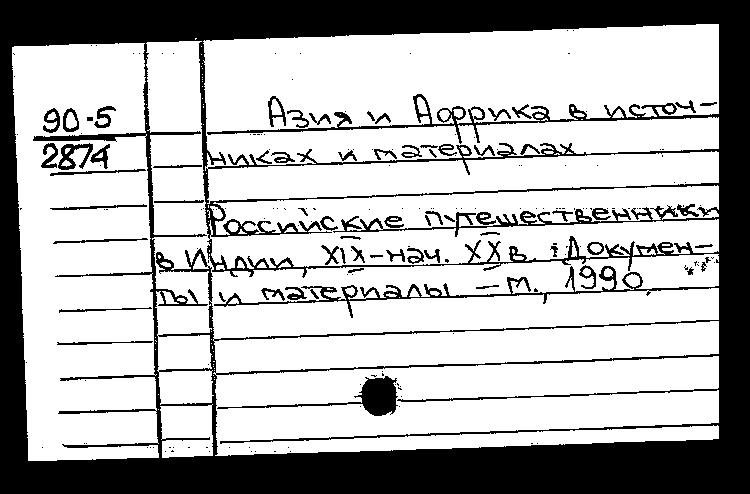 90-5
2874
Азия и Африка в источ-
никах и материалах
Российские путешественники
в Индии, XIX-нач. XX в. : Докумен-
ты и материалы - М., 1990.